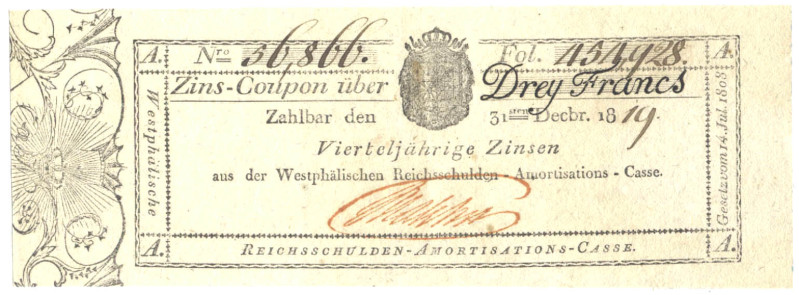 A. Nro 56,866. Fol. 454,928. A.
Zins-Coupon über Drey Francs
Zahlbar den 31sten Decbr. 1819.
Vierteljährige Zinsen
aus der Westphälischen Reichsschulden-Amortisations-Casse.
A. REICHSSCHULDEN-AMORTISATIONS-CASSE. A.
Westphälische
Gesetz vom 14. Jul. 1808